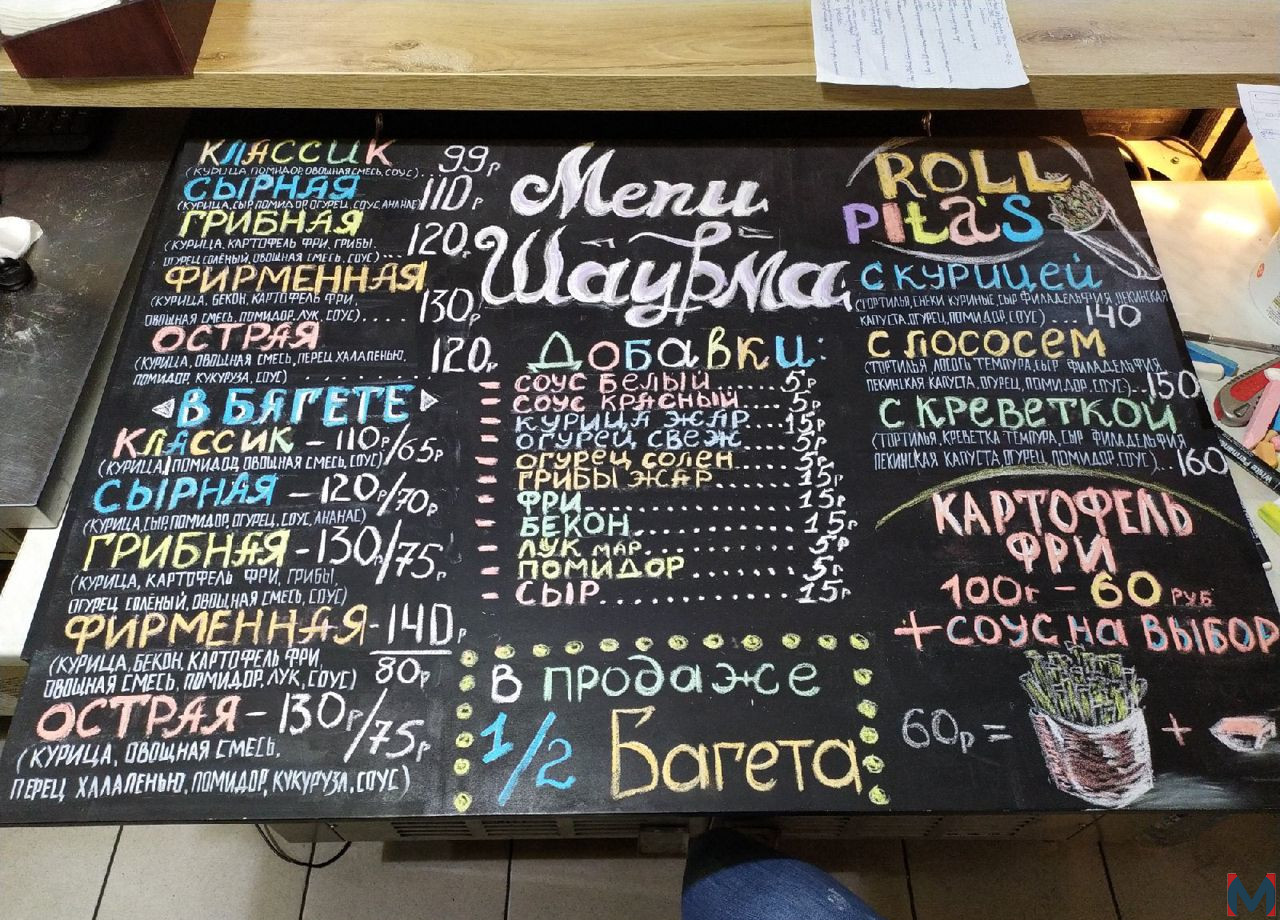 КЛАССИК 99р
(КУРИЦА, ПОМИДОР, ОВОЩНАЯ СМЕСЬ, СОУС)...
СЫРНАЯ 110р
(КУРИЦА, СЫР, ПОМИДОР, ОГУРЕЦ, СОУС, АНАНАС)
ГРИБНАЯ
(КУРИЦА, КАРТОФЕЛЬ ФРИ, ГРИБЫ, 120р
ОГУРЕЦ СОЛЁНЫЙ, ОВОЩНАЯ СМЕСЬ, СОУС)...
ФИРМЕННАЯ
(КУРИЦА, БЕКОН, КАРТОФЕЛЬ ФРИ, 130р
ОВОЩНАЯ СМЕСЬ, ПОМИДОР, ЛУК, СОУС)....
ОСТРАЯ
(КУРИЦА, ОВОЩНАЯ СМЕСЬ, ПЕРЕЦ ХАЛАПЕНЬЮ, 120р
ПОМИДОР, КУКУРУЗА, СОУС)..........
В БАГЕТЕ
КЛАССИК - 110р/65р
(КУРИЦА, ПОМИДОР, ОВОЩНАЯ СМЕСЬ, СОУС)
СЫРНАЯ - 120р/70р
(КУРИЦА, СЫР, ПОМИДОР, ОГУРЕЦ, СОУС, АНАНАС)
ГРИБНАЯ - 130р/75р
(КУРИЦА, КАРТОФЕЛЬ ФРИ, ГРИБЫ,
ОГУРЕЦ СОЛЁНЫЙ, ОВОЩНАЯ СМЕСЬ, СОУС)
ФИРМЕННАЯ - 140р
(КУРИЦА, БЕКОН, КАРТОФЕЛЬ ФРИ, 80р
ОВОЩНАЯ СМЕСЬ, ПОМИДОР, ЛУК, СОУС)
ОСТРАЯ - 130р/75р
(КУРИЦА, ОВОЩНАЯ СМЕСЬ,
ПЕРЕЦ ХАЛАПЕНЬЮ, ПОМИДОР, КУКУРУЗА, СОУС)
Menu
Шаурма
Добавки:
- СОУС БЕЛЫЙ......5р
- СОУС КРАСНЫЙ....5р
- КУРИЦА ЖАР....15р
- ОГУРЕЦ СВЕЖ 5р
- ОГУРЕЦ СОЛЕН 5р
- ГРИБЫ ЖАР......15р
- ФРИ..........15р
- БЕКОН..........15р
- ЛУК МАР..........5р
- ПОМИДОР........5р
- СЫР............15р
В продаже
1/2 Багета
ROLL
Pita's
С КУРИЦЕЙ
(ТОРТИЛЬЯ, СНЕКИ КУРИНЫЕ, СЫР ФИЛАДЕЛЬФИЯ, ПЕКИНСКАЯ
КАПУСТА, ОГУРЕЦ, ПОМИДОР, СОУС)... 140
С ЛОСОСЕМ
(ТОРТИЛЬЯ, ЛОСОСЬ ТЕМПУРА, СЫР ФИЛАДЕЛЬФИЯ
ПЕКИНСКАЯ КАПУСТА, ОГУРЕЦ, ПОМИДОР, СОУС)..150
С КРЕВЕТКОЙ
(ТОРТИЛЬЯ, КРЕВЕТКА ТЕМПУРА, СЫР ФИЛАДЕЛЬФИЯ
ПЕКИНСКАЯ КАПУСТА, ОГУРЕЦ, ПОМИДОР, СОУС)...160
КАРТОФЕЛЬ
ФРИ
100г - 60 РУБ
+СОУС НА ВЫБОР
60р = +
M